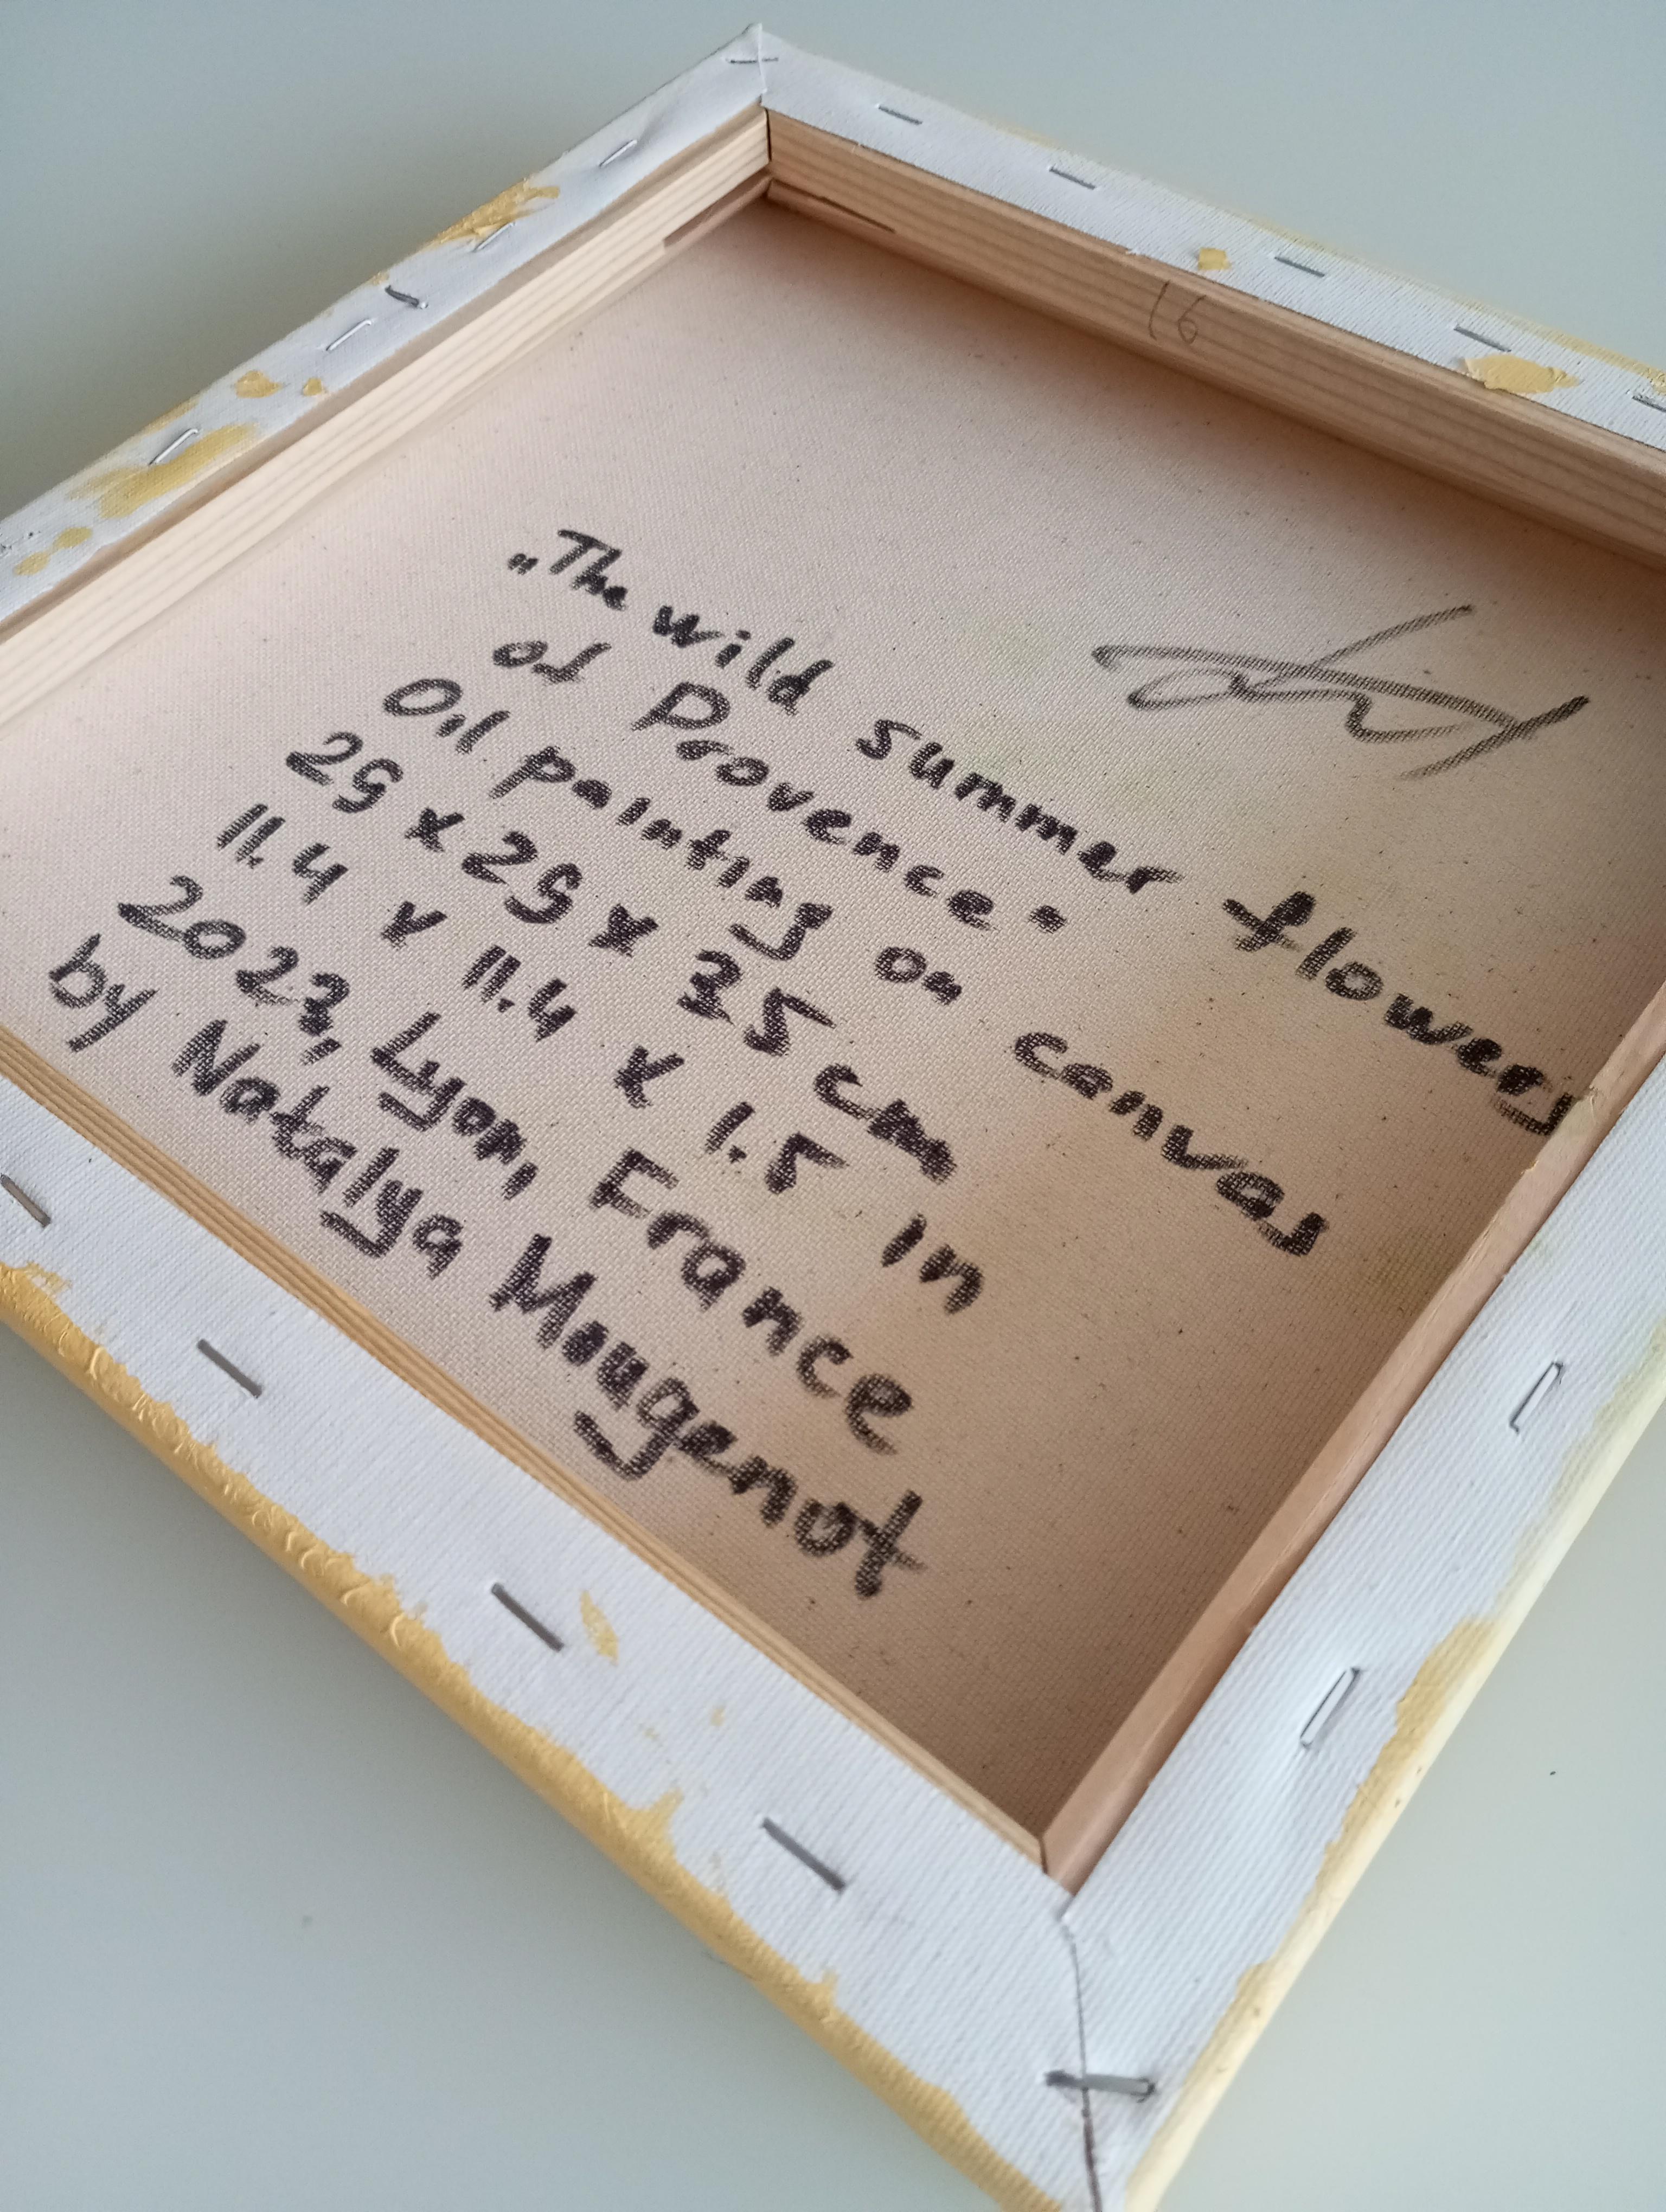 16
„The wild summer flowers
of Provence"
Oil painting on canvas
29 x 29 x 3.5 cm
11.4 x 11.4 x 1.5 in
2023, Lyon, France
by Natalya Mougenot